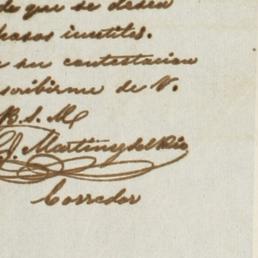 de que se desea
pasos inutiles.
ser contestacion
scribirme de V.
B. S. M.
J. Martin y del Rio
Corredor